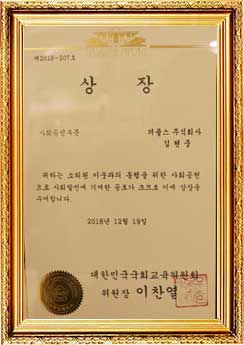 제2018-207호
상 장
사회공헌부문
퍼플스 주식회사
김현중
귀하는 소외된 이웃과의 동행을 위한 사회공헌
으로 사회발전에 기여한 공로가 크므로 이에 상장을
수여합니다.
2018년 12월 19일
대한민국국회교육위원회
위원장 이찬열